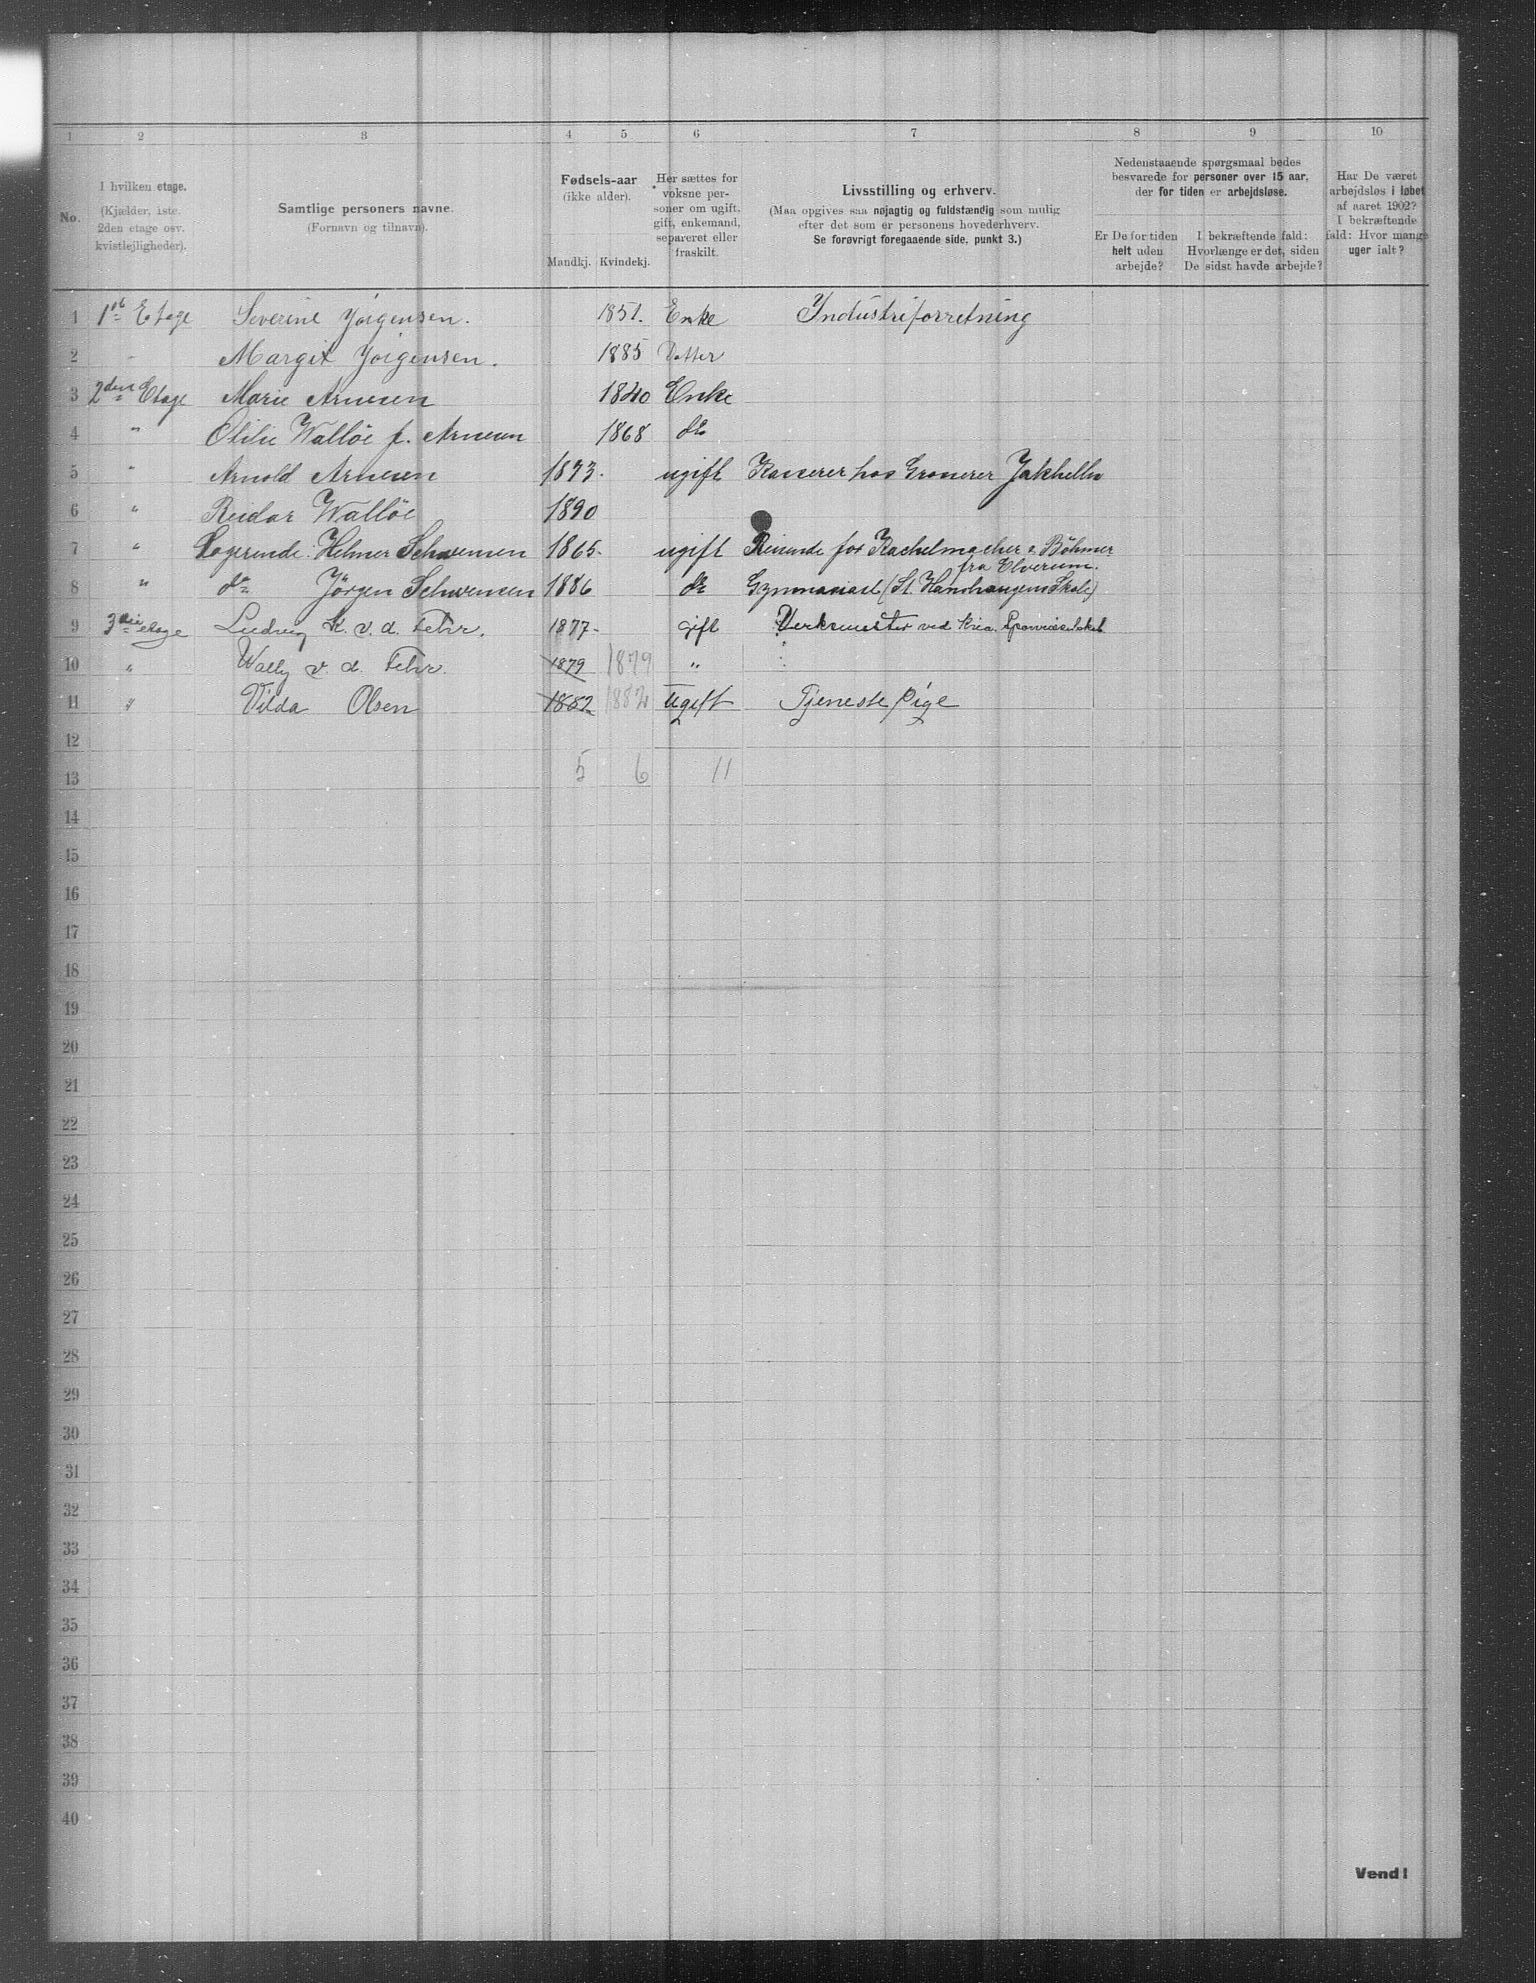 1 2 3 4 5 6 7 8 9 10
No.
I hvilken etage.
(Kjælder, 1ste.
2den etage osv.
kvistlejligheder).
Samtlige personers navne.
(Fornavn og tilnavn).
Fødsels-aar
(ikke alder).
Mandkj. Kvindekj.
Her sættes for
voksne per-
soner om ugift,
gift, enkemand,
separeret eller
fraskilt.
Livsstilling og erhverv.
(Maa opgives saa nøjagtig og fuldstændig som mulig
efter det som er personens hovederhverv.
Se forøvrigt foregaaende side, punkt 3.)
Nedenstaaende spørgsmaal bedes
besvarede for personer over 15 aar,
der for tiden er arbejdsløse.
Er De for tiden
helt uden
arbejde?
I bekræftende fald:
Hvorlænge er det, siden
De sidst havde arbejde?
Har De været
arbejdsløs i løbet
af aaret 1902?
I bekræftende
fald: Hvor mange
uger ialt?
1 1ste Etage Severine Jørgensen. 1851. Enke Industriforretning
2 " Margit Jørgensen. 1885 Datter
3 2den Etage Marie Arnesen 1840 Enke
4 " Otilie Walløe f. Arnesen 1868 do
5 " Arnold Arnesen 1873. ugift Kasserer hos Grosserer Jakhelln
6 " Reidar Walløe 1890
7 " Logerende. Helmer Schwensen 1865. ugift Reisende for Kachelmacher & Böhmer
8 " do Jörgen Schwensen 1886 do Gymnasiast (St. Hanshaugens Skole) fra Elverum.
9 3die etage Ludvig K. v. d. Fehr. 1877. gift Verksmester ved Kria. Sporveisselskab
10 " Wally v. d. Fehr. 1879 1879 "
11 " Vilda Olsen 1882 1882 Ugift Tjeneste Pige
12
13 5 6 11
14
15
16
17
18
19
20
21
22
23
24
25
26
27
28
29
30
31
32
33
34
35
36
37
38
39
40
Vend!